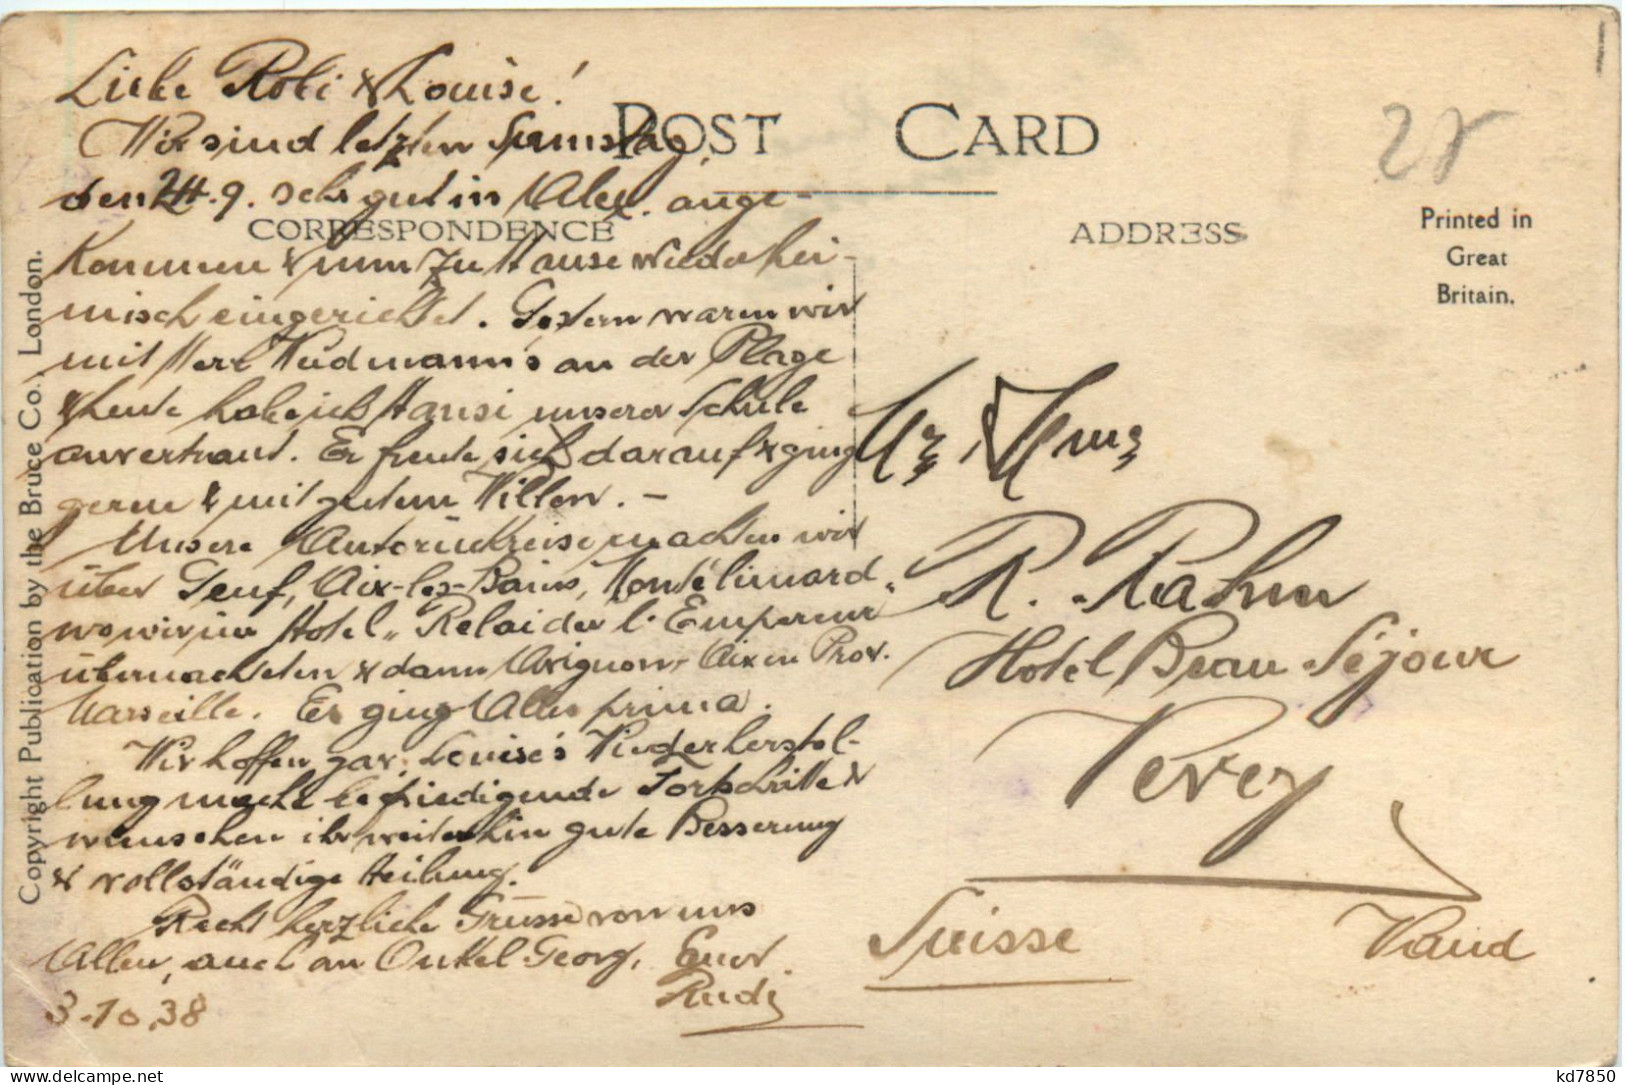 Liebe Robi & Louise!
Wir sind letzten Samstag,
den 24. 9. sehr gut in Alex. ange-
kommen & nun zu Hause wieder hei-
misch eingerichtet. Gestern waren wir
mit Herr Weidmann's an der Plage
& heute habe ich Hansi unserer Schule
anvertraut. Er freute sich darauf & ging
gerne & mit gutem Willen. —
Unsere Autorückreise machten wir
über Genf, Aix-les-Bains, Montélimard,
wo wir im Hotel „Relai de l'Empereur"
übernachteten & dann Avignon, Aix en Prov.
Marseille. Es ging Alles prima.
Wir hoffen gar, Louise's Wiederherstel-
lung mache befriedigende Fortschritte &
wünschen ihr weiterhin gute Besserung
& vollständige Heilung.
Recht herzliche Grüsse von uns
Allen, auch an Onkel Georg, Euer
Rudi
3.10.38
POST CARD
CORRESPONDENCE
ADDRESS
Printed in
Great
Britain.
Copyright Publication by the Bruce Co., London.
R. Rahm
Hotel Beau Séjour
Vevey
Suisse Vaud
kd7850